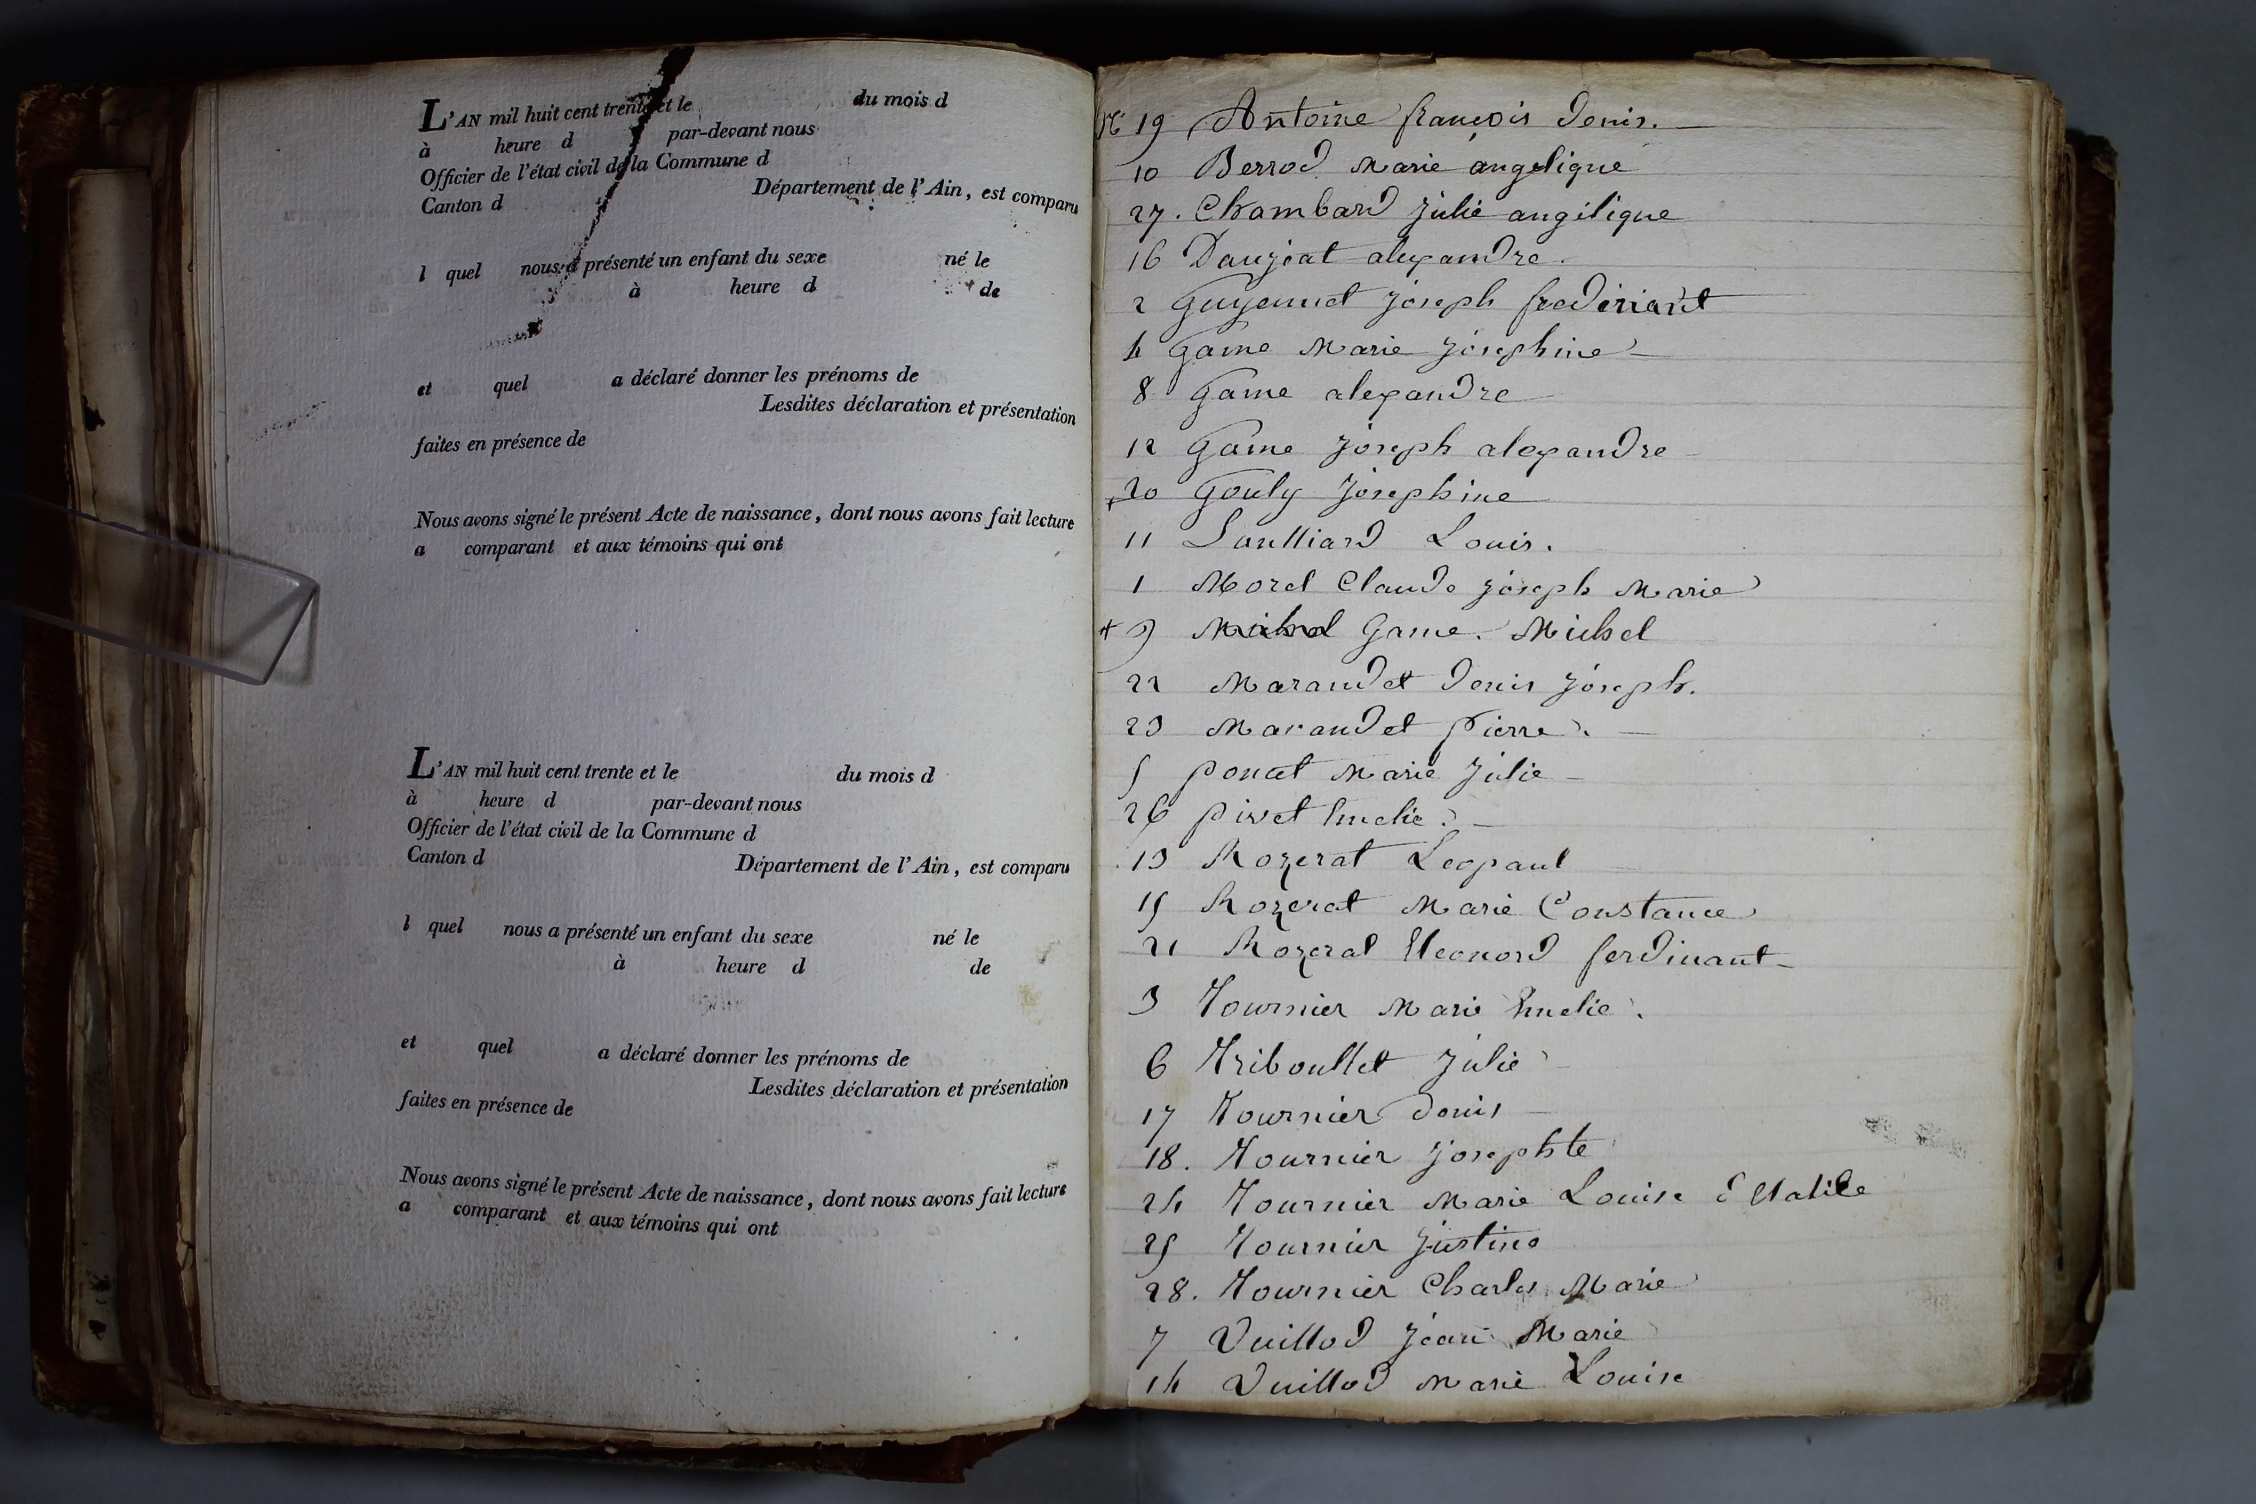 L'AN mil huit cent trente et le du mois d
à heure d par-devant nous
Officier de l'état civil de la Commune d
Canton d Département de l'Ain, est comparu
l quel nous a présenté un enfant du sexe né le
à heure d de
et quel a déclaré donner les prénoms de
Lesdites déclaration et présentation
faites en présence de
Nous avons signé le présent Acte de naissance, dont nous avons fait lecture
a comparant et aux témoins qui ont
L'AN mil huit cent trente et le du mois d
à heure d par-devant nous
Officier de l'état civil de la Commune d
Canton d Département de l'Ain, est comparu
l quel nous a présenté un enfant du sexe né le
à heure d de
et quel a déclaré donner les prénoms de
Lesdites déclaration et présentation
faites en présence de
Nous avons signé le présent Acte de naissance, dont nous avons fait lecture
a comparant et aux témoins qui ont
No 19 Antoine françois Denis.
10 Berrod Marie angelique
27. Chambard Julie angélique
16 Dauziat alexandre.
2 Guyennet Joseph fredinant
4 Game Marie Josephine
8 Game alexandre
12 Game Joseph alexandre
20 Gouly Josephine
11 Loulliard Louis.
1 Morel Claude Joseph Marie
+ 9 Michel Game. Michel
22 Marandet Denis Joseph.
23 Marandet Pierre.
5 poncet Marie Julie
26 pivet Emelie.
13 Rozerat Leopaul
15 Rozerat Marie Constance
21 Rozerat Eleonord ferdinant
3 Tournier Marie Emelie.
6 Triboullet Julie
17 Tournier Denis
18. Tournier Josephte
24 Tournier Marie Louise
25 Tournier Justine
28. Tournier Charles Marie
7 Vuillod Jean Marie
14 Vuillod Marie Louise